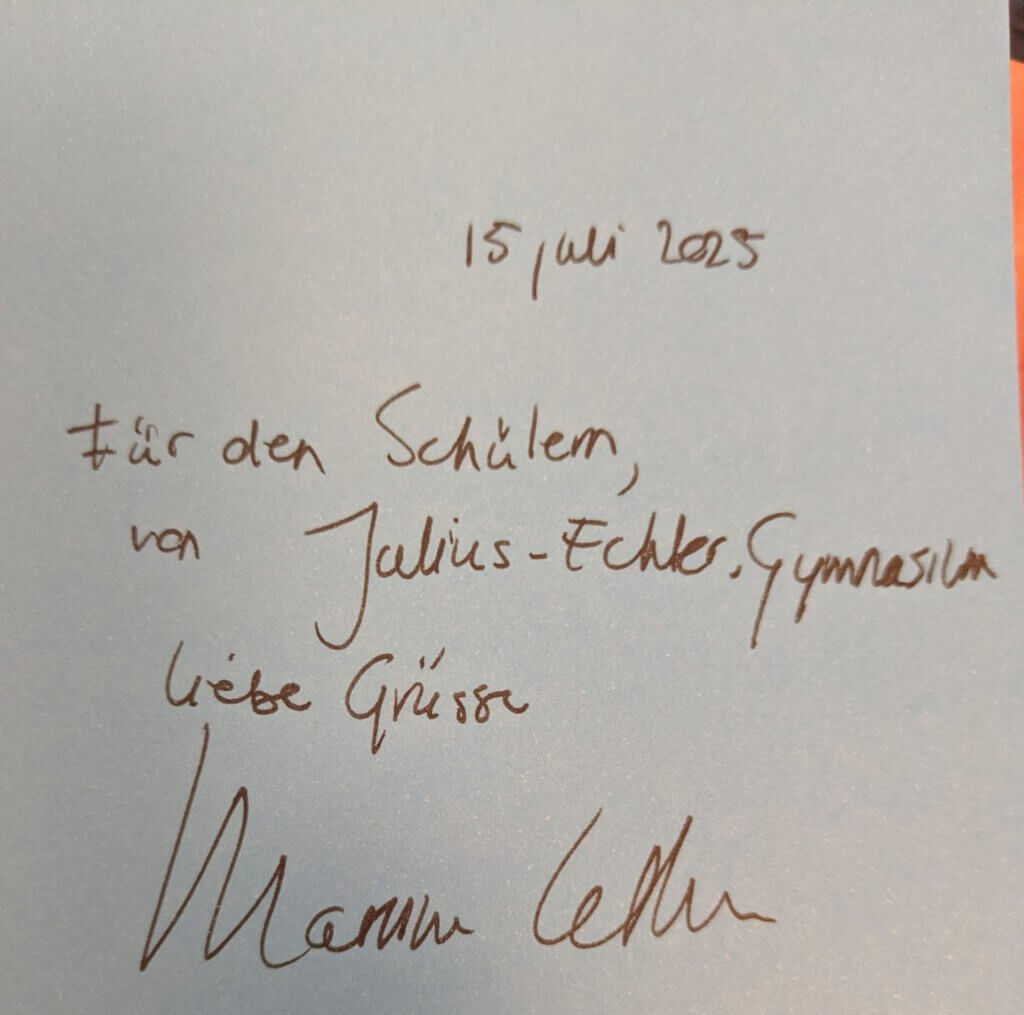 15 juli 2025
Für den Schülern,
von Julius-Echter-Gymnasium
liebe Grüsse